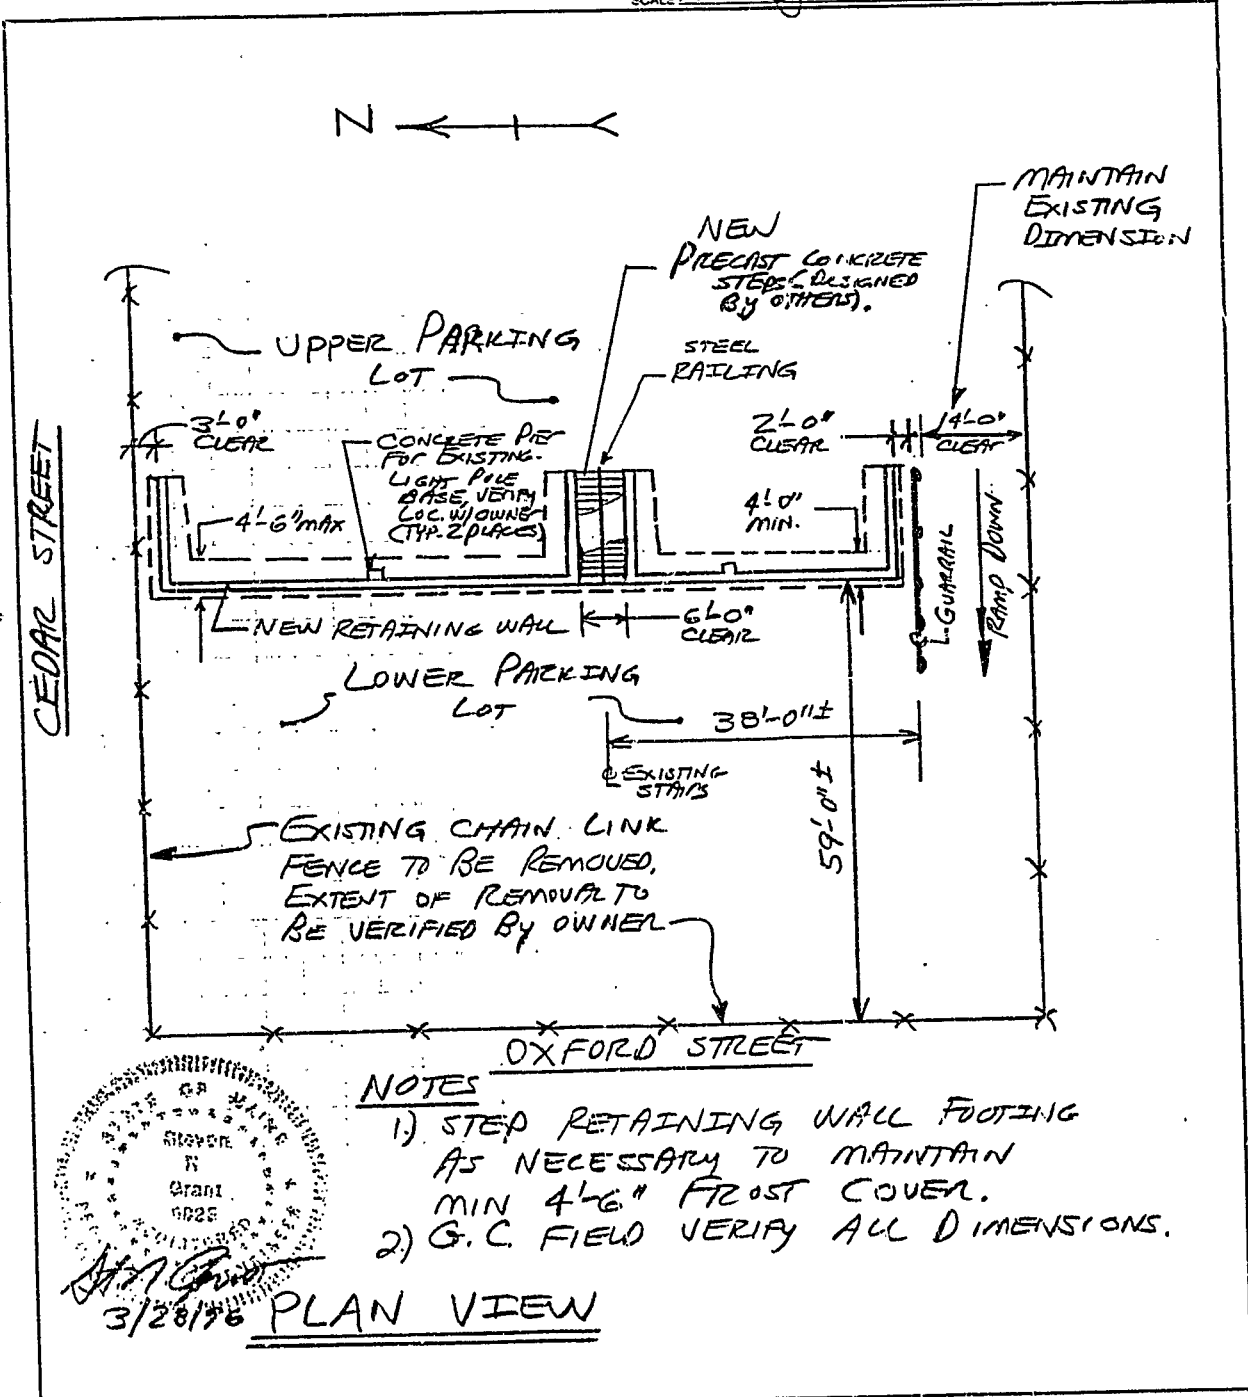 SCALE
N
MAINTAIN
EXISTING
DIMENSION
NEW
PRECAST CONCRETE
STEPS (DESIGNED
BY OTHERS).
UPPER PARKING
LOT
STEEL
RAILING
3'-0"
CLEAR
CONCRETE PIER
FOR EXISTING
LIGHT POLE
BASE, VERIFY
LOC. W/OWNER
(TYP. 2 PLACES)
2'-0"
CLEAR
14'-0"
CLEAR
4'-6" MAX
4'-0"
MIN.
CEDAR STREET
GUARRAIL
RAMP DOWN
NEW RETAINING WALL
6'-0"
CLEAR
LOWER PARKING
LOT
38'-0"±
℄ EXISTING
STAIRS
59'-0"±
EXISTING CHAIN LINK
FENCE TO BE REMOVED.
EXTENT OF REMOVAL TO
BE VERIFIED BY OWNER
OXFORD STREET
NOTES
1.) STEP RETAINING WALL FOOTING
AS NECESSARY TO MAINTAIN
MIN 4'-6" FROST COVER.
2.) G.C. FIELD VERIFY ALL DIMENSIONS.
STATE OF MAINE
Steven
N
Grant
3/28/96
PLAN VIEW